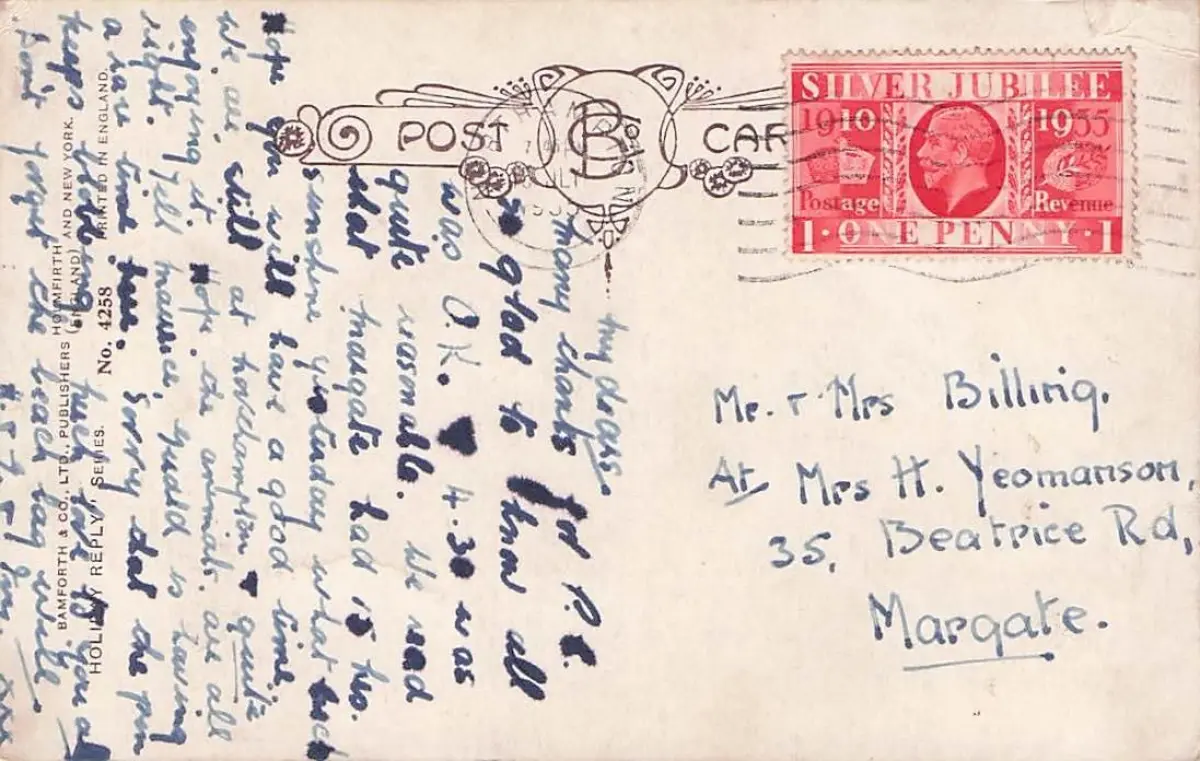 POST CARD
SILVER JUBILEE
1910 1935
Postage Revenue
1 · ONE PENNY · 1
Mr. + Mrs Billing.
At Mrs H. Yeomanson,
35, Beatrice Rd,
Margate.
my dears.
many thanks for P.C.
so glad to know all
was O.K. 4.30 was
quite reasonable. We read
that Margate had 15 hrs.
sunshine yesterday what luck
Hope you will have a good time.
We are still at
quite
enjoying it. Hope the animals are all
right. Tell maurice, is having
a rare time here. Sorry that the pen
keeps
Don't forget the beach bag will
BAMFORTH & CO., LTD., PUBLISHERS HOLMFIRTH (ENGLAND) AND NEW YORK.
HOLIDAY REPLY" SERIES. No. 4258 PRINTED IN ENGLAND.